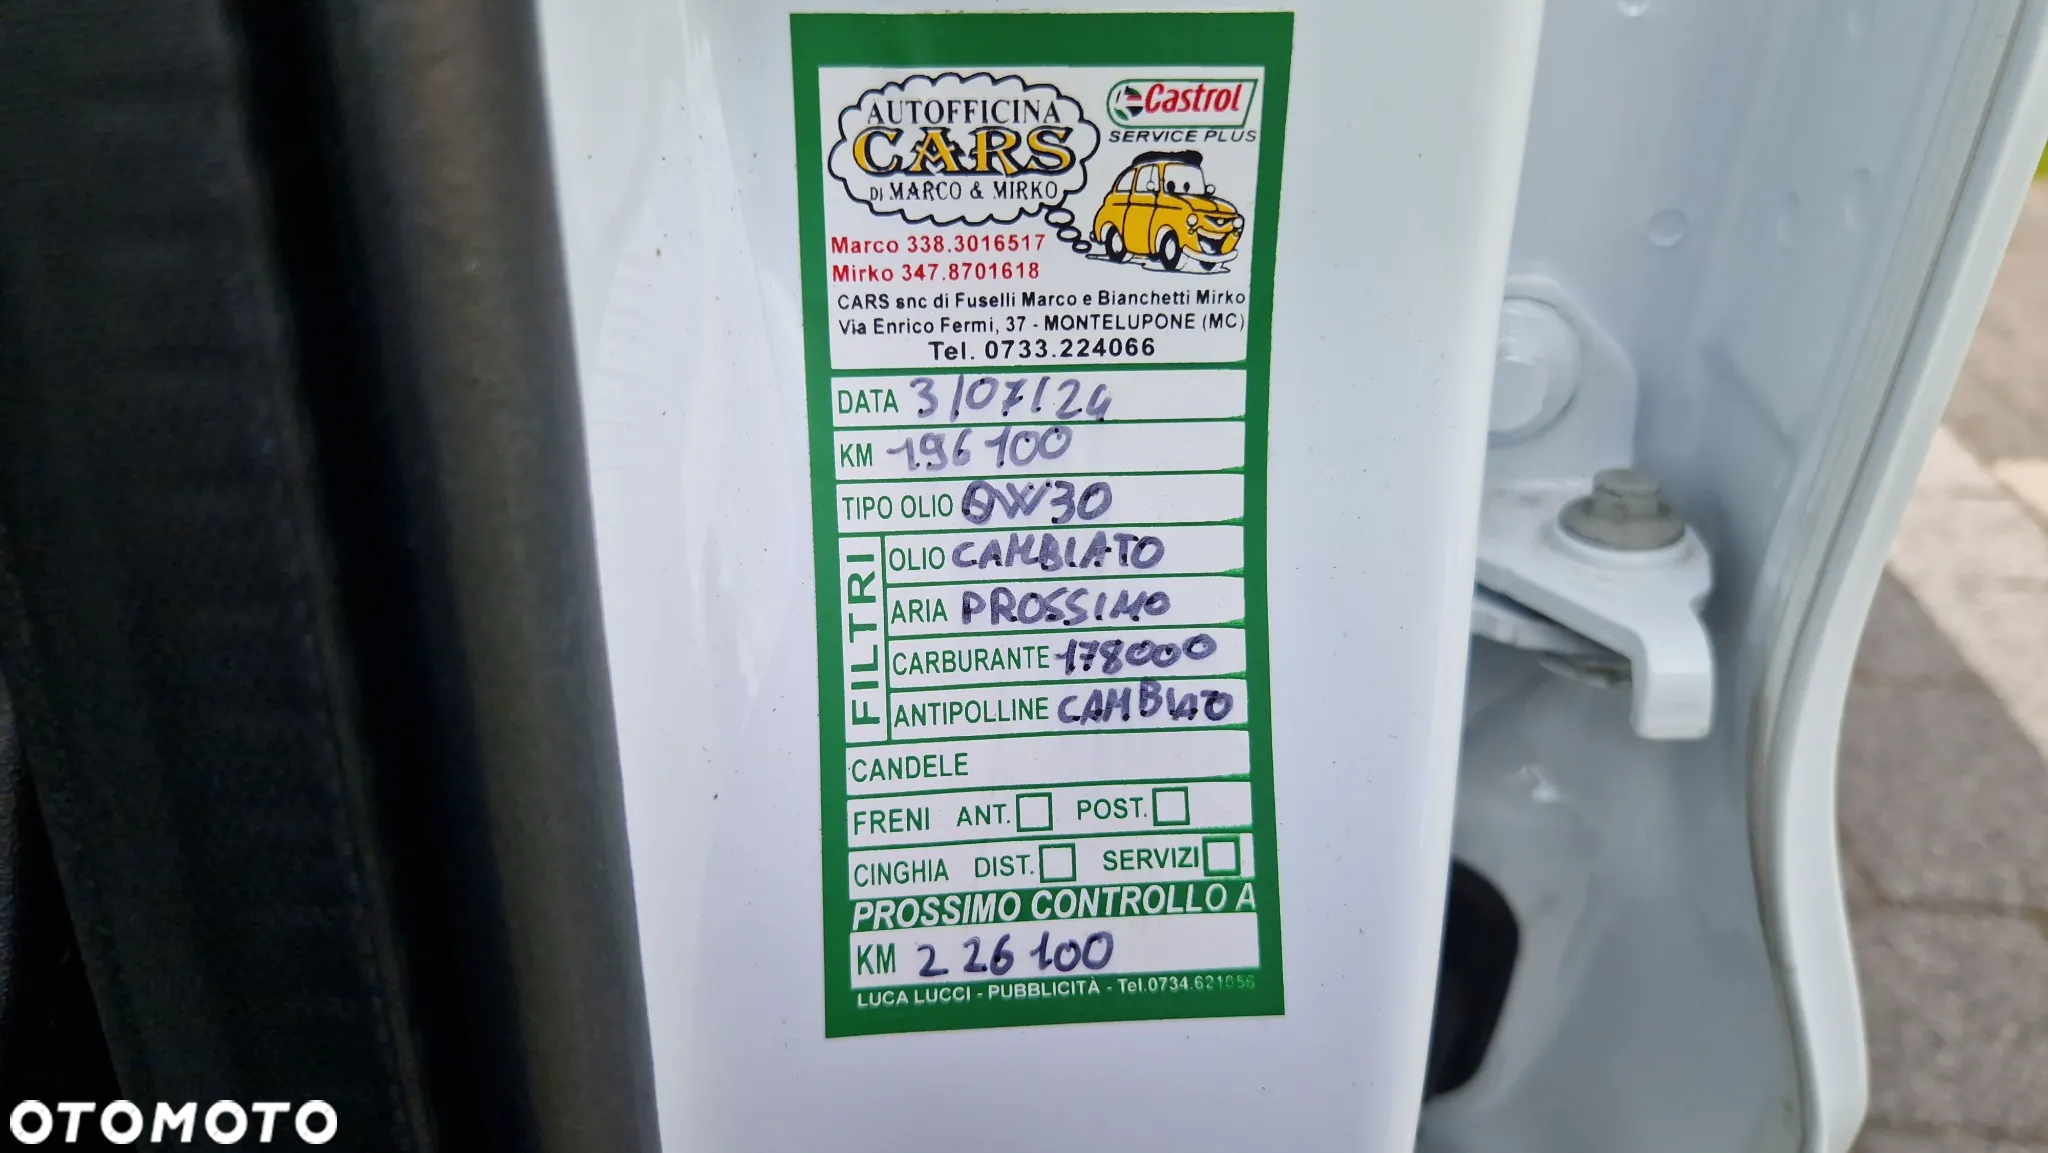 AUTOFFICINA
CARS
DI MARCO & MIRKO
Castrol
SERVICE PLUS
Marco 338.3016517
Mirko 347.8701618
CARS snc di Fuselli Marco e Bianchetti Mirko
Via Enrico Fermi, 37 - MONTELUPONE (MC)
Tel. 0733.224066
DATA 3/07/24
KM 196100
TIPO OLIO 0W30
FILTRI
OLIO CAMBIATO
ARIA PROSSIMO
CARBURANTE 178000
ANTIPOLLINE CAMBIATO
CANDELE
FRENI ANT. POST.
CINGHIA DIST. SERVIZI
PROSSIMO CONTROLLO A
KM 226100
LUCA LUCCI - PUBBLICITÀ - Tel.0734.621056
OTOMOTO